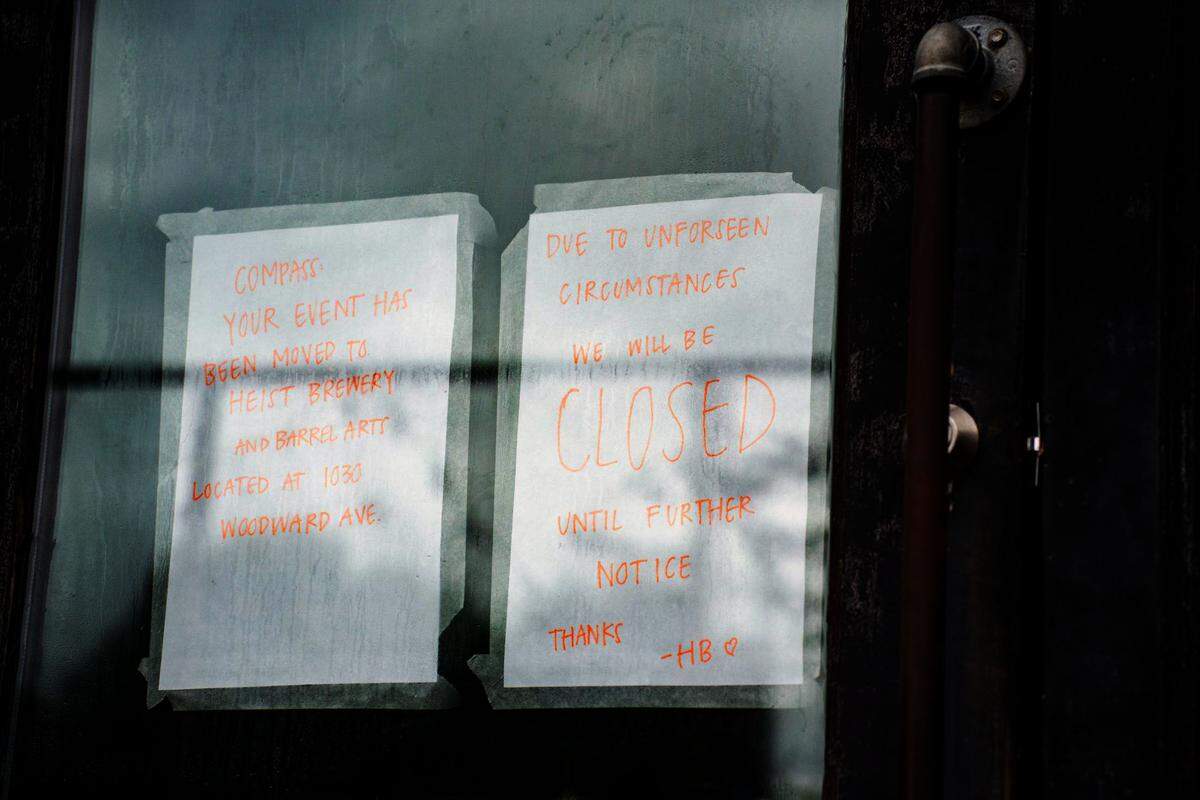 COMPASS:
YOUR EVENT HAS
BEEN MOVED TO
HEIST BREWERY
AND BARREL ARTS
LOCATED AT 1030
WOODWARD AVE.
DUE TO UNFORSEEN
CIRCUMSTANCES
WE WILL BE
CLOSED
UNTIL FURTHER
NOTICE
THANKS
-HB ♡